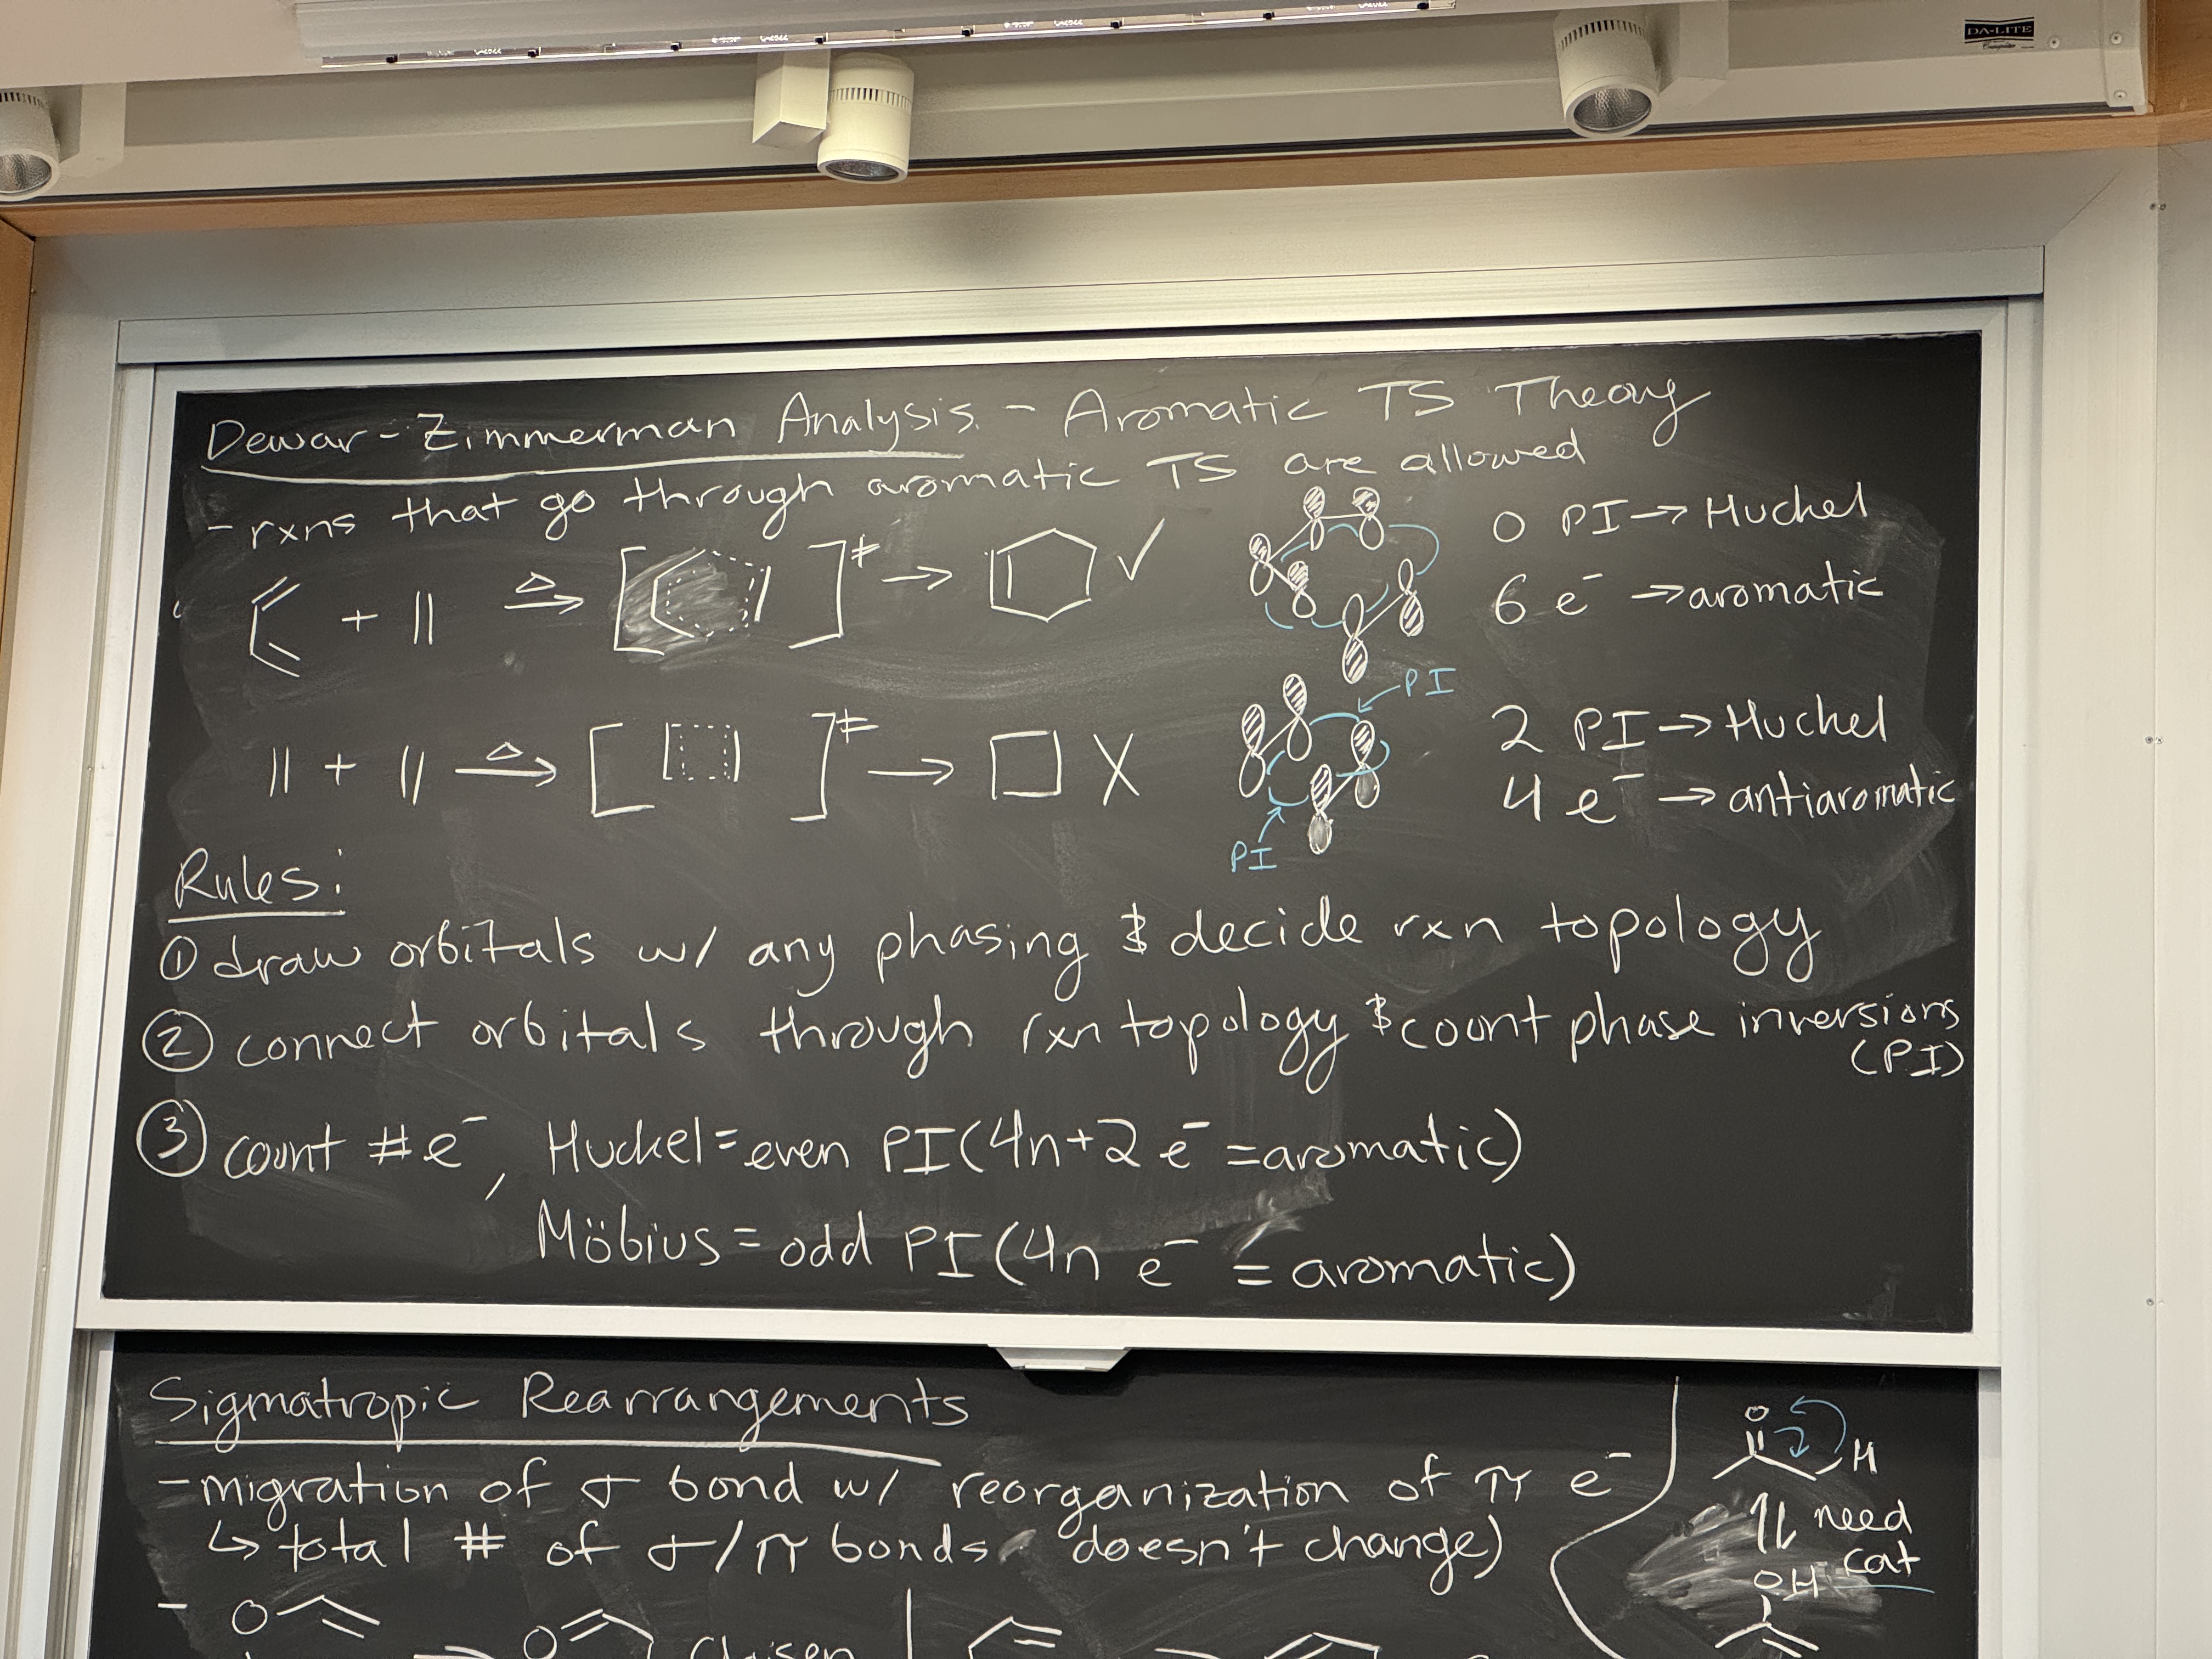 DA-LITE
Dewar-Zimmerman Analysis - Aromatic TS Theory
- rxns that go through aromatic TS are allowed
+ || Δ → [ ]‡ → ✓
0 PI → Huckel
6 e⁻ → aromatic
PI
|| + || Δ → [ ]‡ → □ X
2 PI → Huckel
4 e⁻ → antiaromatic
PI
Rules:
① draw orbitals w/ any phasing & decide rxn topology
② connect orbitals through rxn topology & count phase inversions
(PI)
③ count # e⁻, Huckel = even PI (4n+2 e⁻ = aromatic)
Möbius = odd PI (4n e⁻ = aromatic)
Sigmatropic Rearrangements
- migration of σ bond w/ reorganization of π e⁻
↳ total # of σ/π bonds doesn't change)
- O
O
Claisen
O
H
need
cat
OH